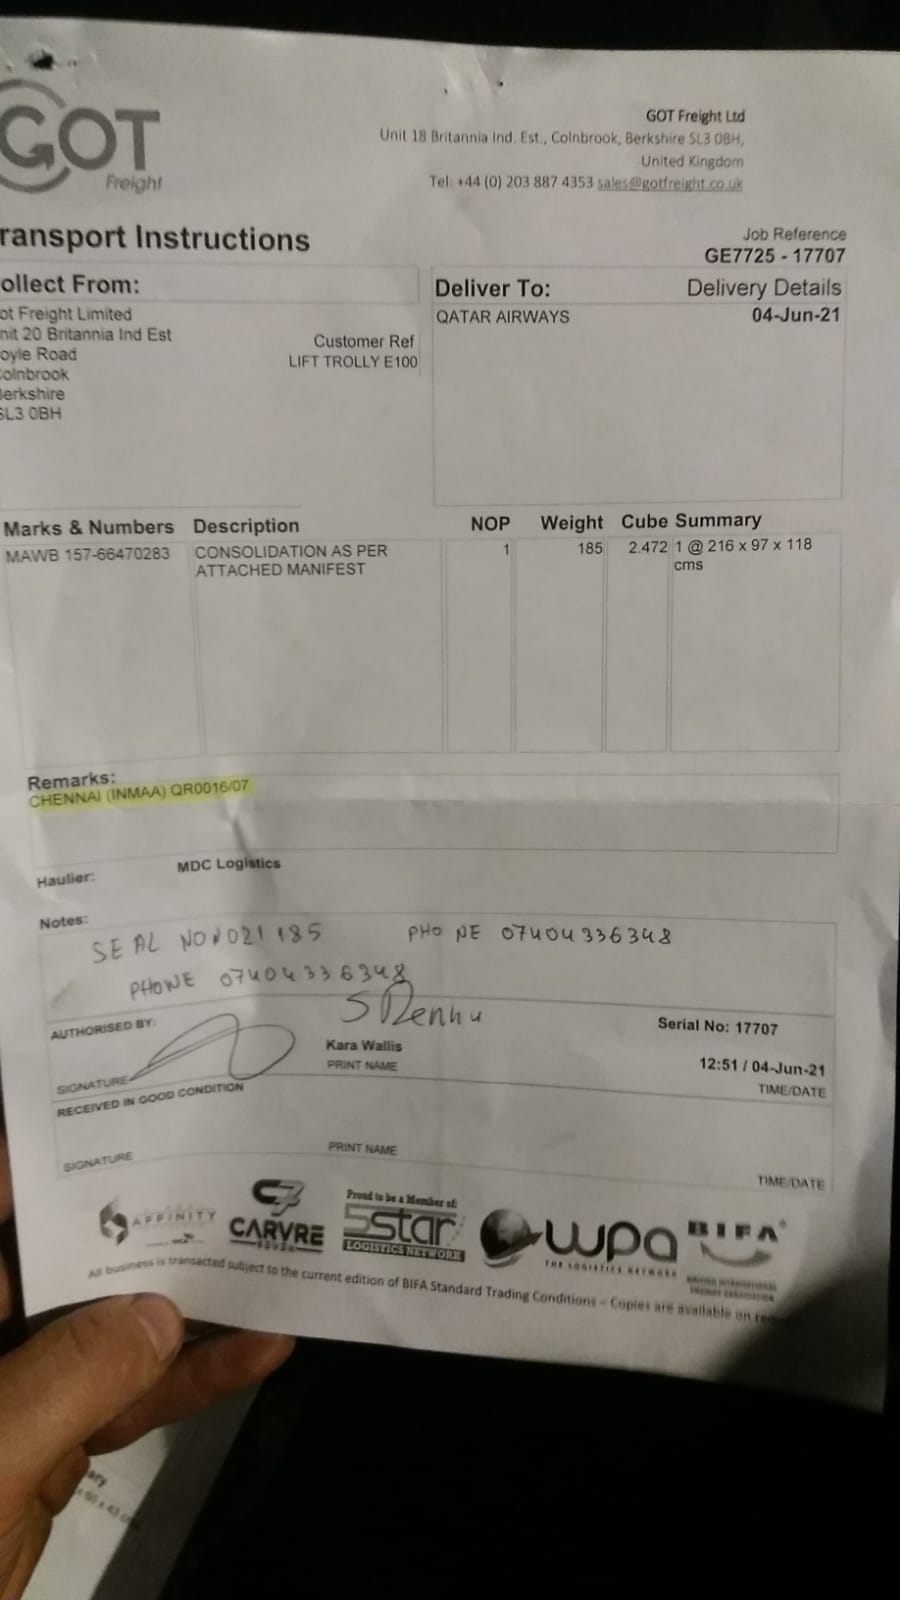 GOT
Freight
GOT Freight Ltd
Unit 18 Britannia Ind. Est., Colnbrook, Berkshire SL3 0BH,
United Kingdom
Tel: +44 (0) 203 887 4353 sales@gotfreight.co.uk
ransport Instructions
Job Reference
GE7725 - 17707
ollect From:
ot Freight Limited
nit 20 Britannia Ind Est
oyle Road
Colnbrook
Berkshire
SL3 0BH
Customer Ref
LIFT TROLLY E100
Deliver To:
Delivery Details
QATAR AIRWAYS
04-Jun-21
Marks & Numbers Description NOP Weight Cube Summary
MAWB 157-66470283 CONSOLIDATION AS PER 1 185 2.472 1 @ 216 x 97 x 118
ATTACHED MANIFEST cms
Remarks:
CHENNAI (INMAA) QR0016/07
Haulier: MDC Logistics
Notes:
SEAL NO 021185 PHONE 07404336348
PHONE 07404336348
AUTHORISED BY:
Serial No: 17707
Kara Wallis
SIGNATURE PRINT NAME
12:51 / 04-Jun-21
TIME/DATE
RECEIVED IN GOOD CONDITION
SIGNATURE PRINT NAME TIME/DATE
AFFINITY
CARVRE
Proud to be a Member of:
5star
LOGISTICS NETWORK
wpa
THE LOGISTICS NETWORK
BIFA
All business is transacted subject to the current edition of BIFA Standard Trading Conditions – Copies are available on